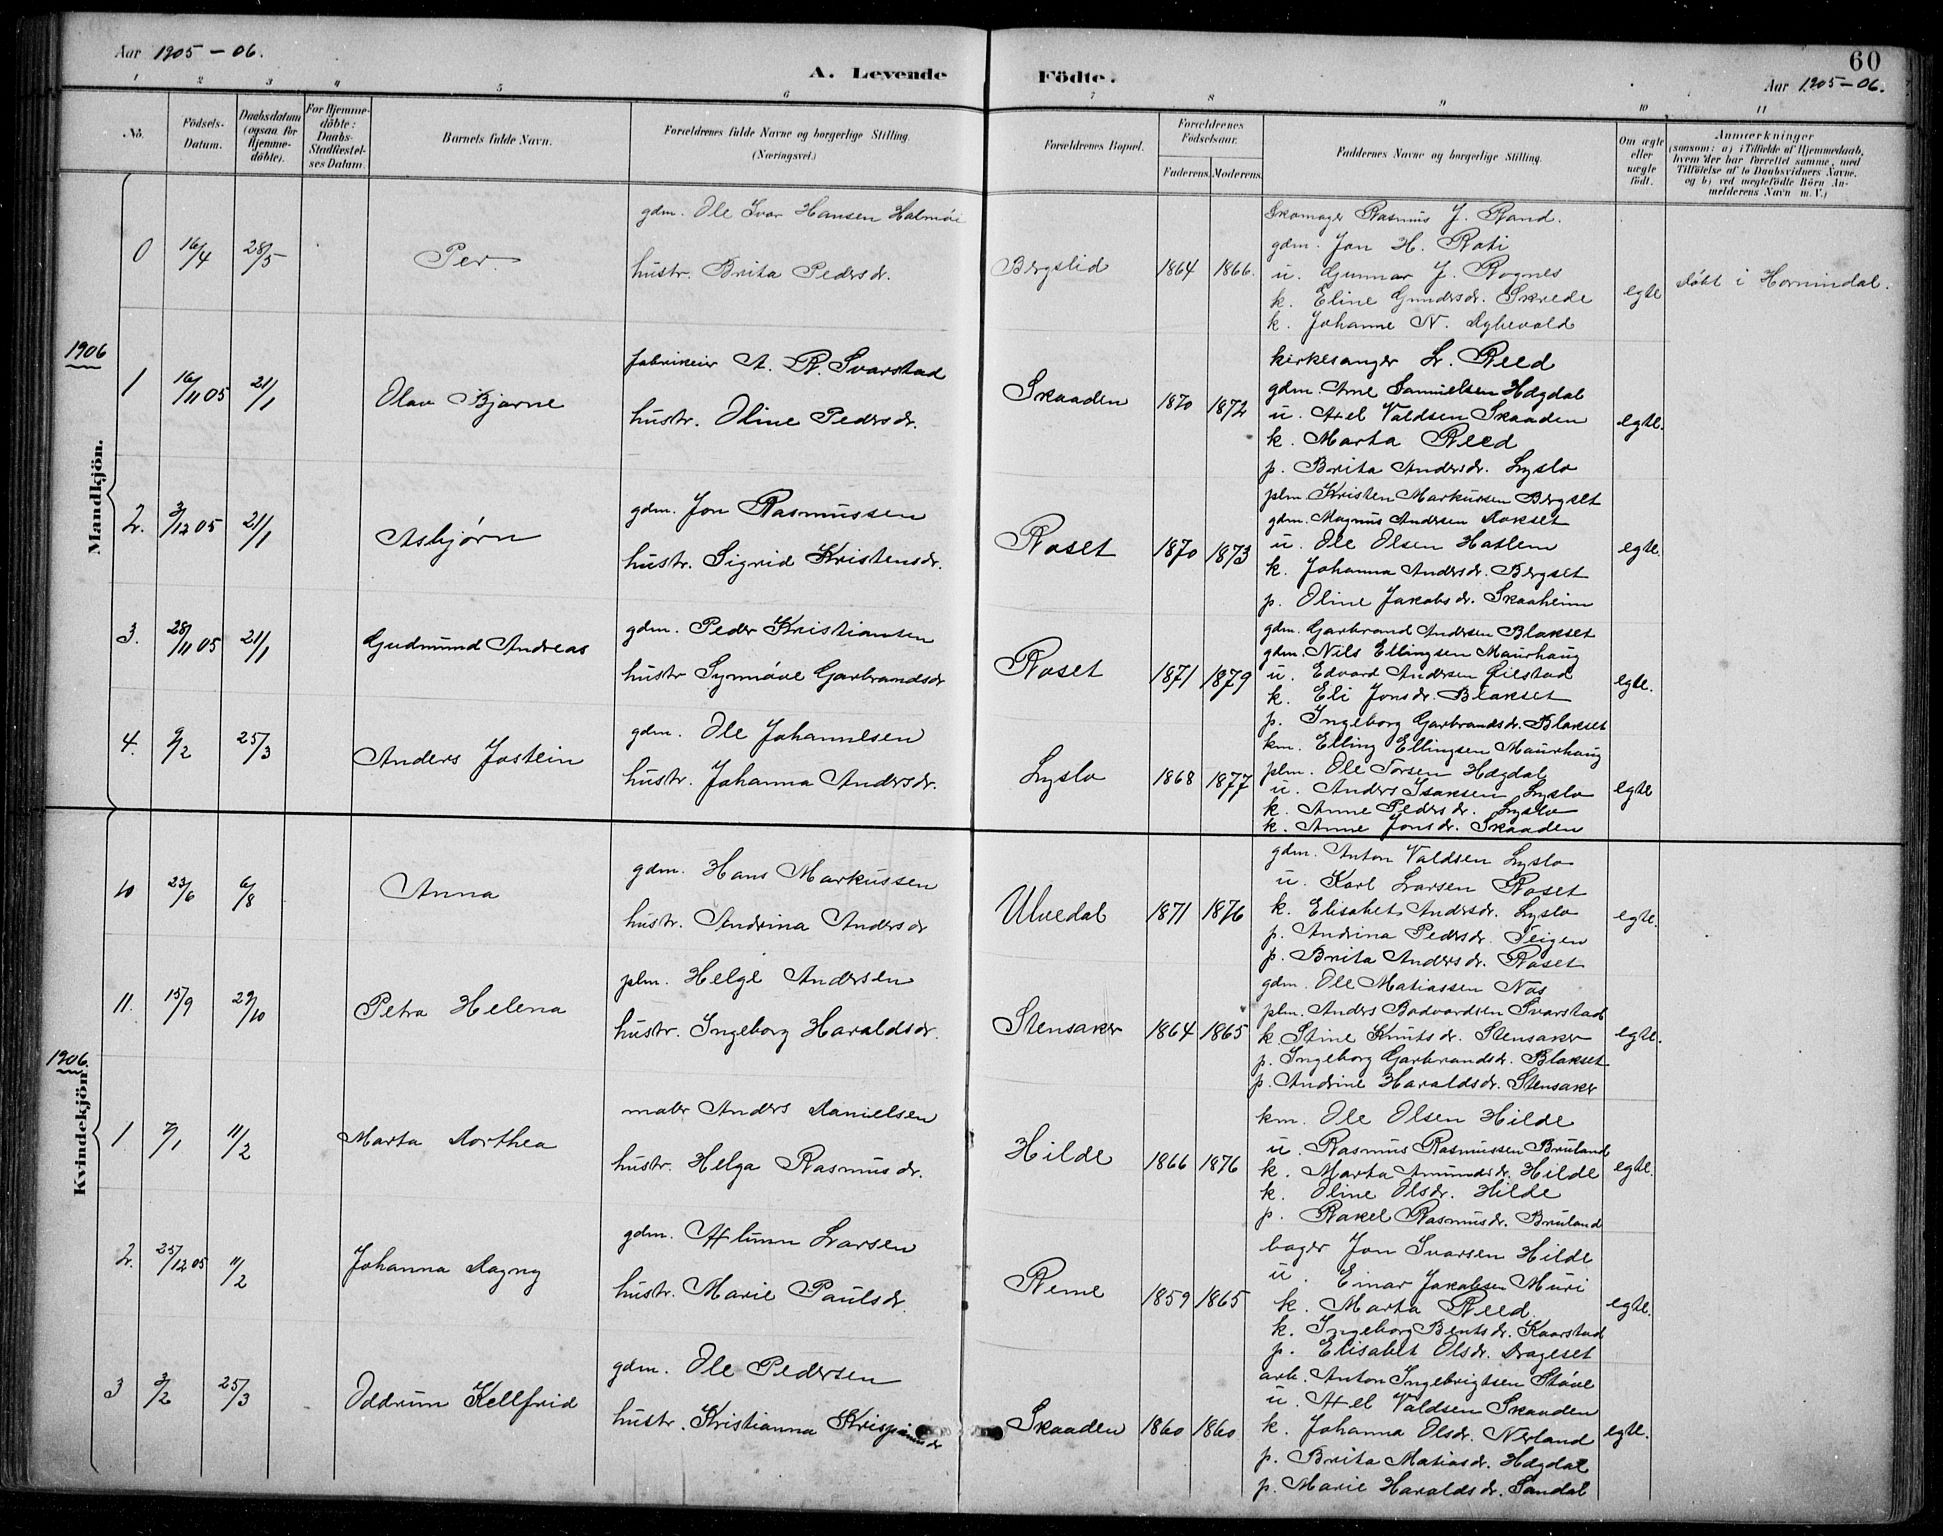 Aar 1905-06.
60
A. Levende Födte.
Aar 1905-06.
1 2 3 4 5 6 7 8 9 10 11
No.
Födsels-Datum.
Daabsdatum (ogsaa for Hjemmedöbte).
For Hjemmedöbte: Daabs-Stadfæstelses Datum.
Barnets fulde Navn.
Forældrenes fulde Navne og borgerlige Stilling.
(Næringsvei.)
Forældrenes Bopæl.
Forældrenes Födselsaar.
Faderens. Moderens.
Faddernes Navne og borgerlige Stilling.
Om ægte eller uægte födt.
Anmærkninger
(saasom: a) i Tilfælde af Hjemmedaab,
hvem der har forrettet samme, med
Tilföielse af to Daabsvidners Navne.
og b) ved uægtefödte Börn An-
melderens Navn m. V.)
Mandkjön.
0 16/4 28/5 Per.
gdm. Ole Ivar Hansen Halmøi
hustr. Brita Pedersdr.
Bergslid 1864 1866.
Skomager Rasmus J. Rand.
gdm. Jon H. Roti
u. Gunnar J. Rognes
k. Eline Gundersdr. Skrede
k. Johanne N. Dybevold
egte
døbt i Hornindal.
1906
1 16/11 05 21/1 Olav Bjarne
fabrikeier A. R. Svarstad
hustr. Oline Pedersdr.
Skaaden 1870 1872
kirkesanger L. Reed
gdm. Arne Samuelsen Hægdal
u. Axel Valdsen Skaaden
k. Marta Reed
p. Brita Andersdr. Lyslo
egte.
2. 3/12 05 21/1 Asbjørn
gdm. Jon Rasmussen
hustr. Sigrid Kristensdr.
Roset 1870 1873
plm. Kristen Markussen Bergset
gdm. Magnus Andersen Dokset
u. Ole Olsen Haslem
k. Johanna Andersdr. Bergset
p. Oline Jakobsdr. Skaaheim
egte.
3. 28/11 05 21/1 Gudmund Andreas
gdm. Peder Kristiansen
hustr Synnøve Garbrandsdr
Roset 1871 1879
gdm. Garbrand Andersen Blakset
gdm. Nils Ellingsen Maurhaug
u. Edvard Andersen Øilstad
k. Eli Jonsdr. Blakset
p. Ingeborg Garbrandsdr. Blakset
egte.
4. 9/2 25/3 Anders Jostein
gdm. Ole Johannesen
hustr. Johanna Andersdr.
Lyslo 1868 1877
km. Elling Ellingsen Maurhaug
plm. Ole Torsen Hægdal
u. Anders Isaksen Lyslo
k. Anne Pedersdr. Lyslo
k. Anne Jonsdr. Skaaden
egte
Kvindekjön.
10 23/6 6/8 Anna
gdm. Hans Markussen
hustr. Andrina Andersdr
Ulvedal 1871 1876
gdm. Anton Valdsen Lyslo
u. Karl Larsen Roset
k. Elisabet Andersdr. Lyslo
p. Andrina Pedersdr. Teigen
p. Brita Andersdr. Roset
egte.
11. 15/9 29/10 Petra Helena
plm. Helge Andersen
hustr. Ingeborg Haraldsdr.
Stensaker 1864 1865
gdm. Ole Matiassen Nos
plm. Anders Bodvardsen Svarstad
k. Stine Knutsdr. Stensaker
p. Ingeborg Garbrandsdr. Blakset
p. Andrine Haraldsdr. Stensaker
egte.
1906.
1 7/1 11/2 Marta Dorthea
maler Anders Danielsen
hustr. Helga Rasmusdr.
Hilde 1866 1876
km. Ole Olsen Hilde
u. Rasmus Rasmussen Bruland
k. Marta Amundsdr. Hilde
k. Oline Olsdr. Hilde
p. Rakel Rasmusdr. Bruland
egte.
2. 25/12 05 11/2 Johanna Dagny
gdm. Larsen
hustr. Marie Paulsdr.
Reme 1859 1865
bager Jon Ivarsen Hilde
u. Einar Jakobsen Muri
k. Marta Reed
k. Ingeborg Bentsdr. Kaarstad
p. Elisabet Olsdr. Drageset
egte.
3 3/2 25/3 Oddrun Kellfrid
gdm. Ole Pedersen
hustr. Kristianna
Skaaden 1860 1860
arb. Anton Ingebrigtsen Støve
u. Axel Valdsen Skaaden
k. Johanna Olsdr. Nerland
p. Brita Matiasdr. Hægdal
p. Marie Haraldsdr. Sandal
egte.